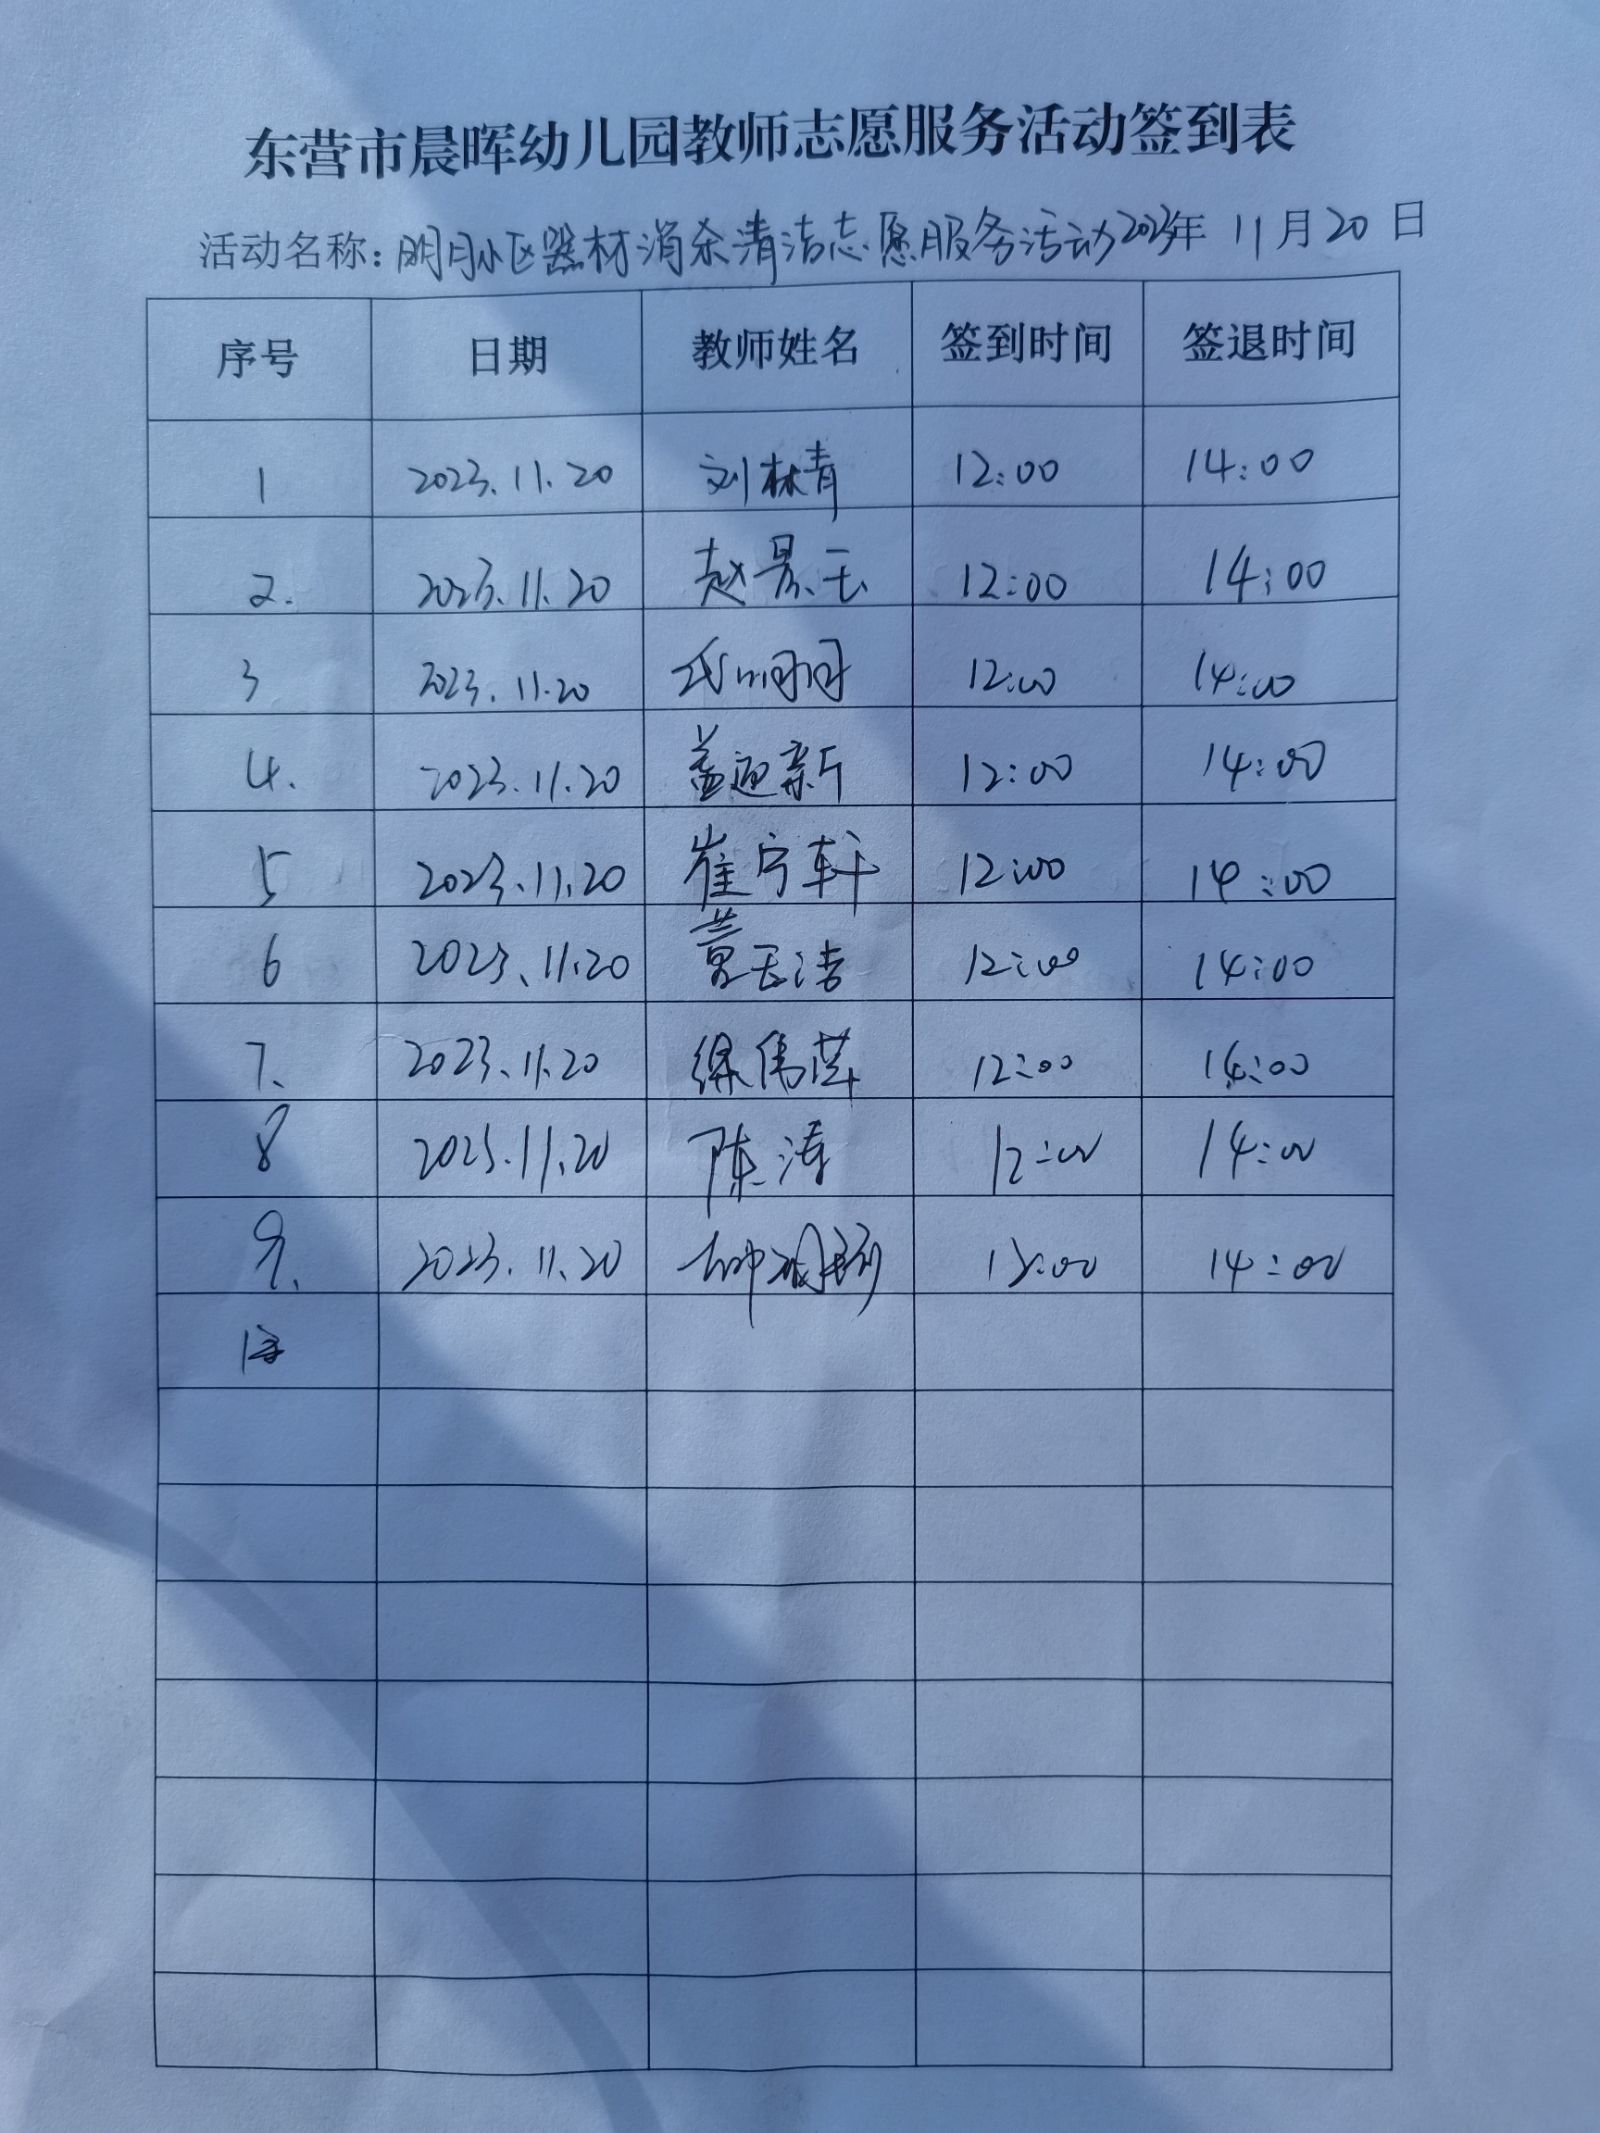 东营市晨晖幼儿园教师志愿服务活动签到表
活动名称：明月小区器材消杀清洁志愿服务活动2023年 11月20日
序号 日期 教师姓名 签到时间 签退时间
1 2023.11.20 刘林青 12:00 14:00
2. 2023.11.20 赵景云 12:00 14:00
3 2023.11.20 12:00 14:00
4. 2023.11.20 盖迎新 12:00 14:00
5 2023.11.20 崔宁轩 12:00 14:00
6 2023.11.20 12:00 14:00
7. 2023.11.20 12:00 14:00
8 2023.11.20 陈涛 12:00 14:00
9. 2023.11.20 12:00 14:00